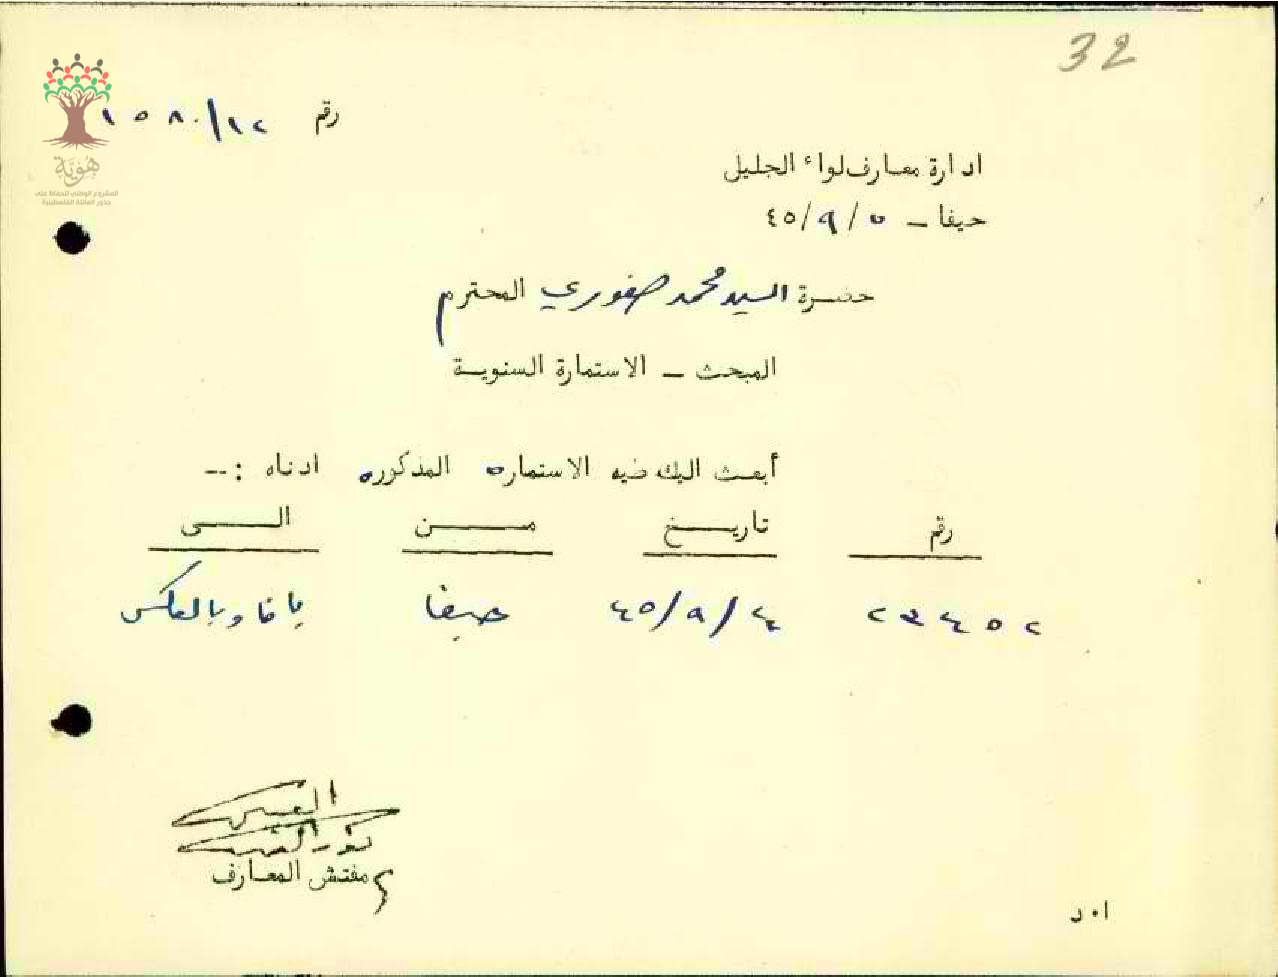 32
رقم ١٢/١٥٨٠
هُوِيَّة
المشروع الوطني للحفاظ على
جذور العائلة الفلسطينية
ادارة معارف لواء الجليل
حيفا ـ ٥/٩/٤٥
حضرة السيد محمد صفوري المحترم
المبحث ـ الاستمارة السنوية
أبعث اليك طيه الاستماره المذكوره ادناه :--
رقم تاريخ من الى
٢٣٤٥٢ ٤/٩/٤٥ حيفا يافا وبالعكس
مفتش المعارف
ا٠د